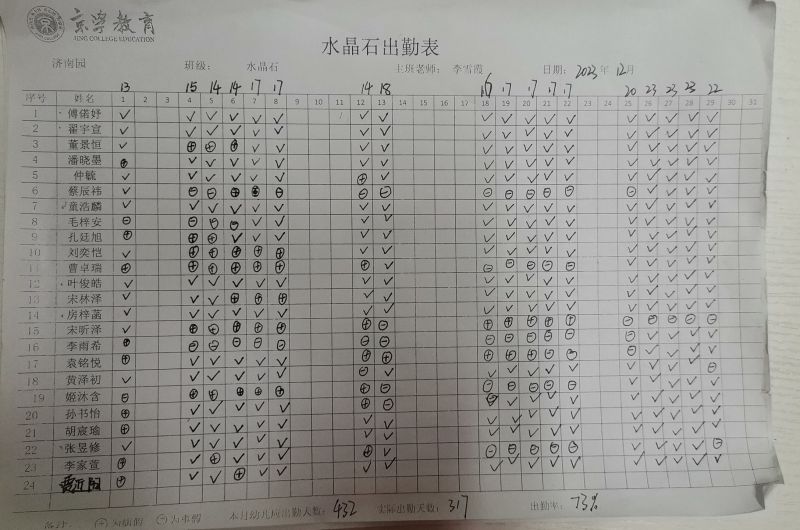 京学教育
JING COLLEGE EDUCATION
水晶石出勤表
济南园 班级: 水晶石 主班老师: 李雪霞 日期: 2023年 12月
13 15 14 14 17 17 14 18 16 17 17 17 17 20 23 23 23 22
序号 姓名 1 2 3 4 5 6 7 8 9 10 11 12 13 14 15 16 17 18 19 20 21 22 23 24 25 26 27 28 29 30 31
1 傅偌妤 ✓ ✓ ✓ ✓ ✓ ✓ ✓ ✓ ✓ ✓ ✓ ✓ ✓ ✓ ✓ ✓ ✓ ✓
2 翟宇宣
3 董景恒
4 潘晓墨
5 仲毓
6 蔡辰祎
7 童浩麟
8 毛梓安
9 孔廷旭
10 刘奕恺
11 曹卓瑞
12 叶俊皓
13 宋林泽
14 房梓菡
15 宋昕泽
16 李雨希
17 袁铭悦
18 黄泽初
19 姬沐含
20 孙书怡
21 胡宸瑜
22 张昱修
23 李家萱
24
备注: ⊕为病假 ⊖为事假 本月幼儿应出勤天数: 432 实际出勤天数: 317 出勤率: 73%